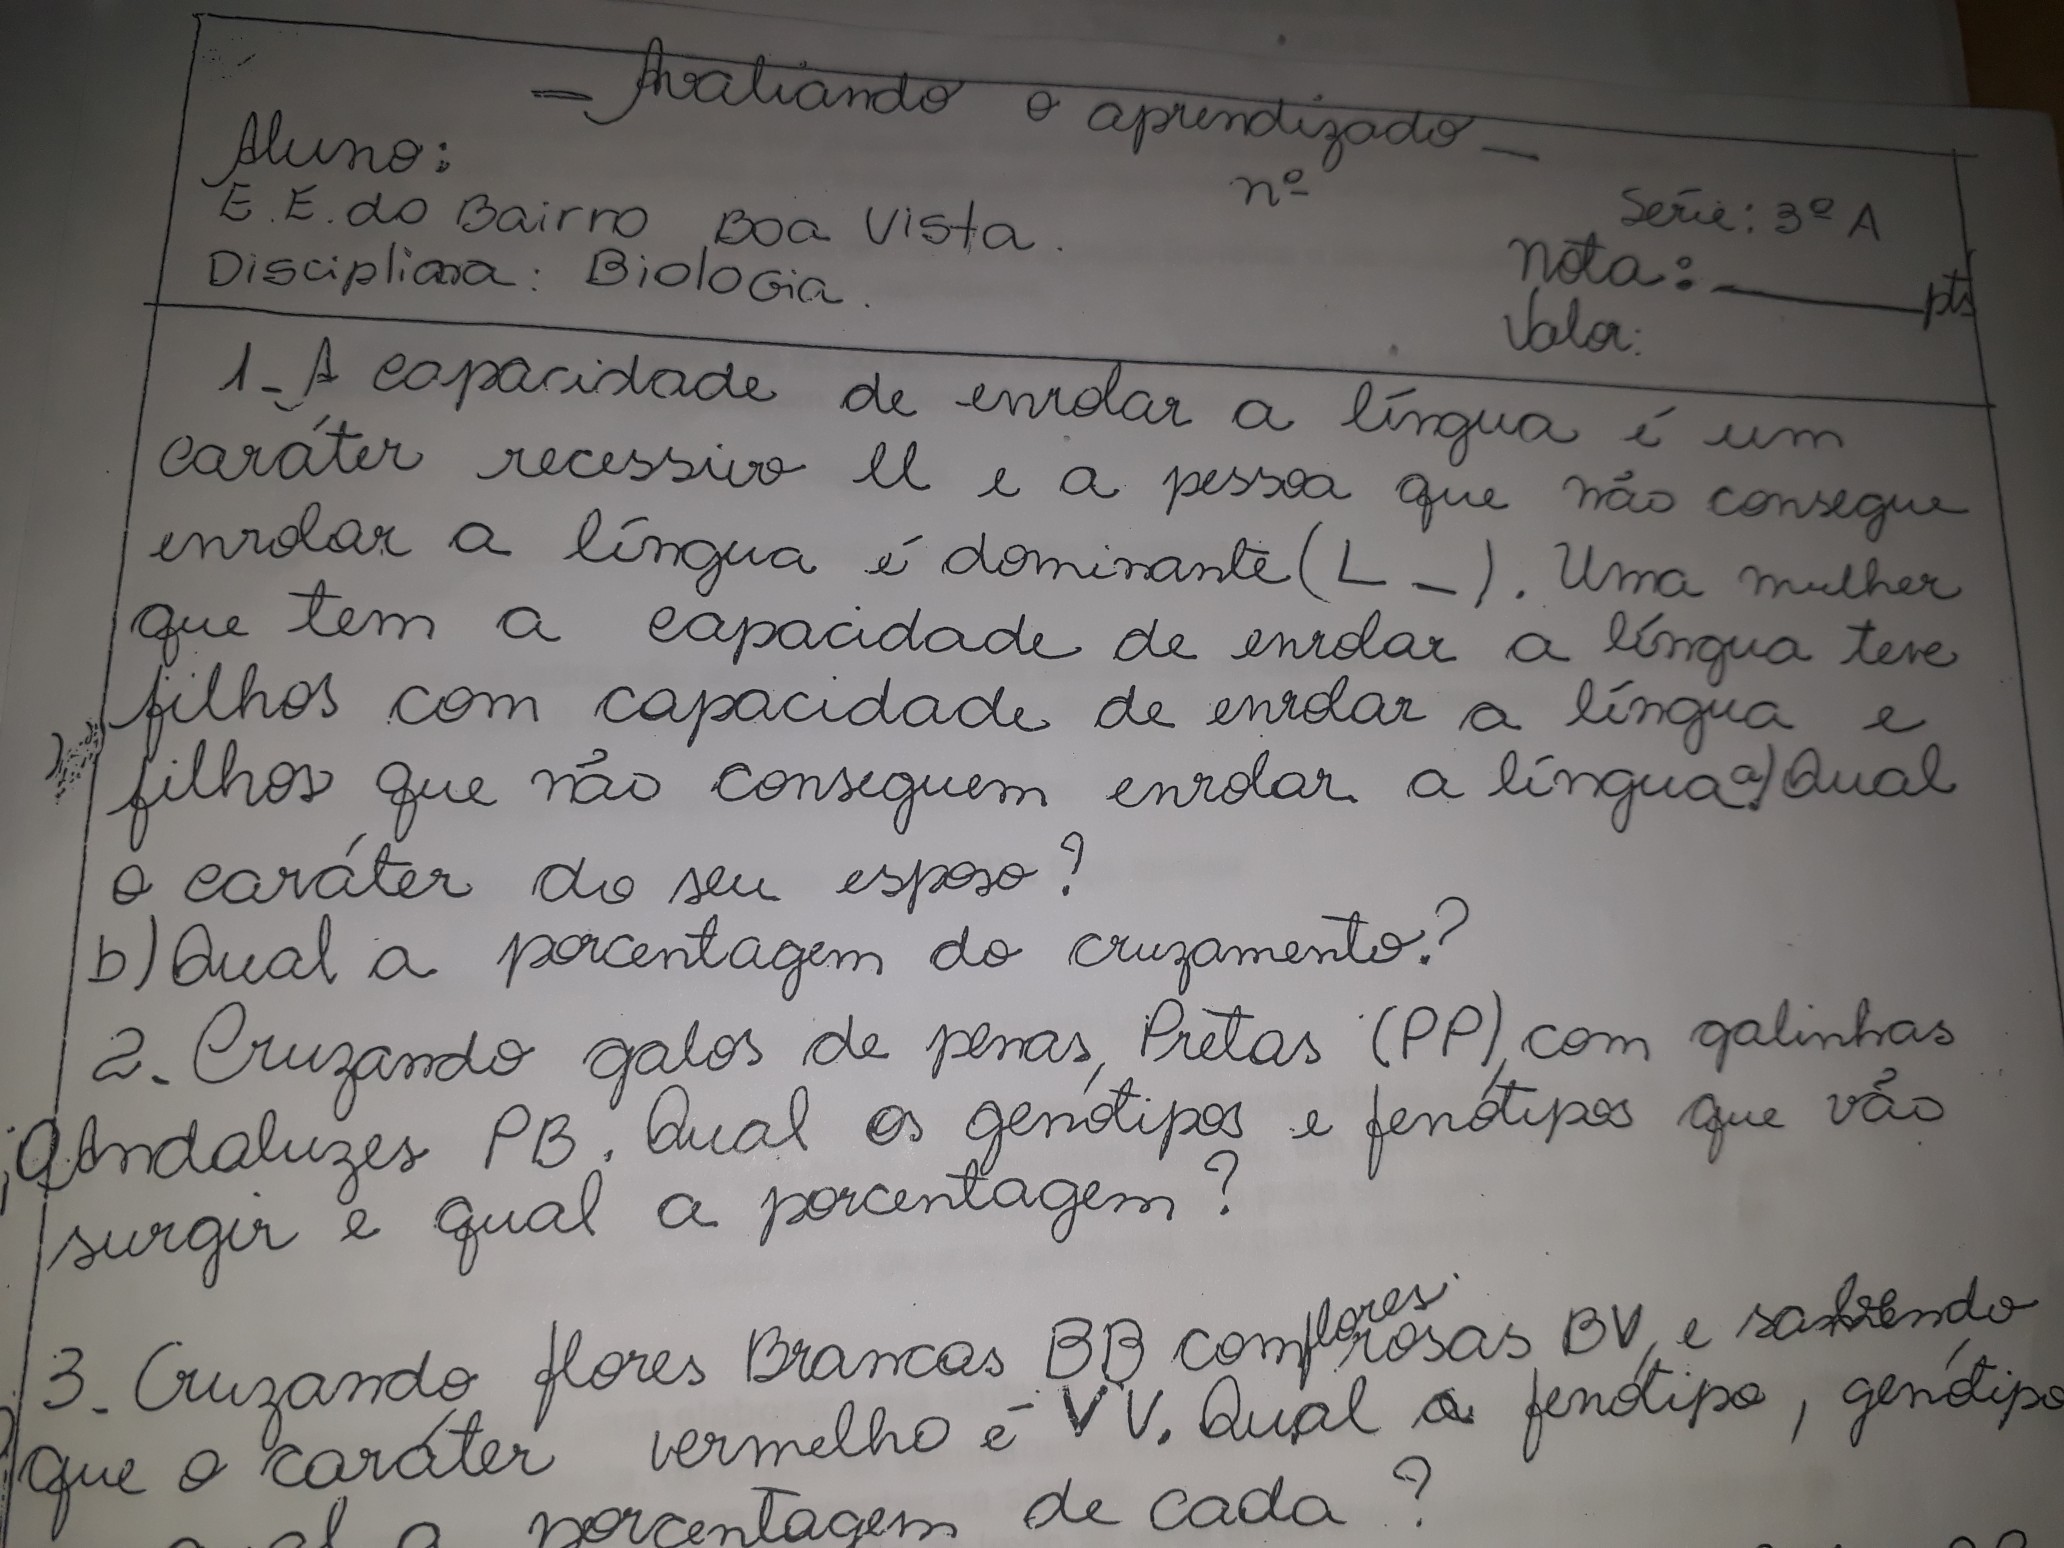 - Avaliando o aprendizado -
Aluno: nº Serie: 3º A
E. E. do Bairro Boa Vista. Nota: ______ pts
Disciplina: Biologia. Valor:
1- A capacidade de enrolar a língua é um
caráter recessivo ll e a pessoa que não consegue
enrolar a língua é dominante (L _). Uma mulher
que tem a capacidade de enrolar a língua teve
filhos com capacidade de enrolar a língua e
filhos que não conseguem enrolar a língua a) Qual
o caráter do seu esposo?
b) Qual a porcentagem do cruzamento?
2. Cruzando galos de penas, Pretas (PP), com galinhas
Andaluzes PB. Qual os genótipos e fenótipos que vão
surgir e qual a porcentagem?
3. Cruzando flores Brancas BB com flores rosas BV, e sabendo
que o caráter vermelho é VV. Qual o fenótipo, genótipo
qual a porcentagem de cada?